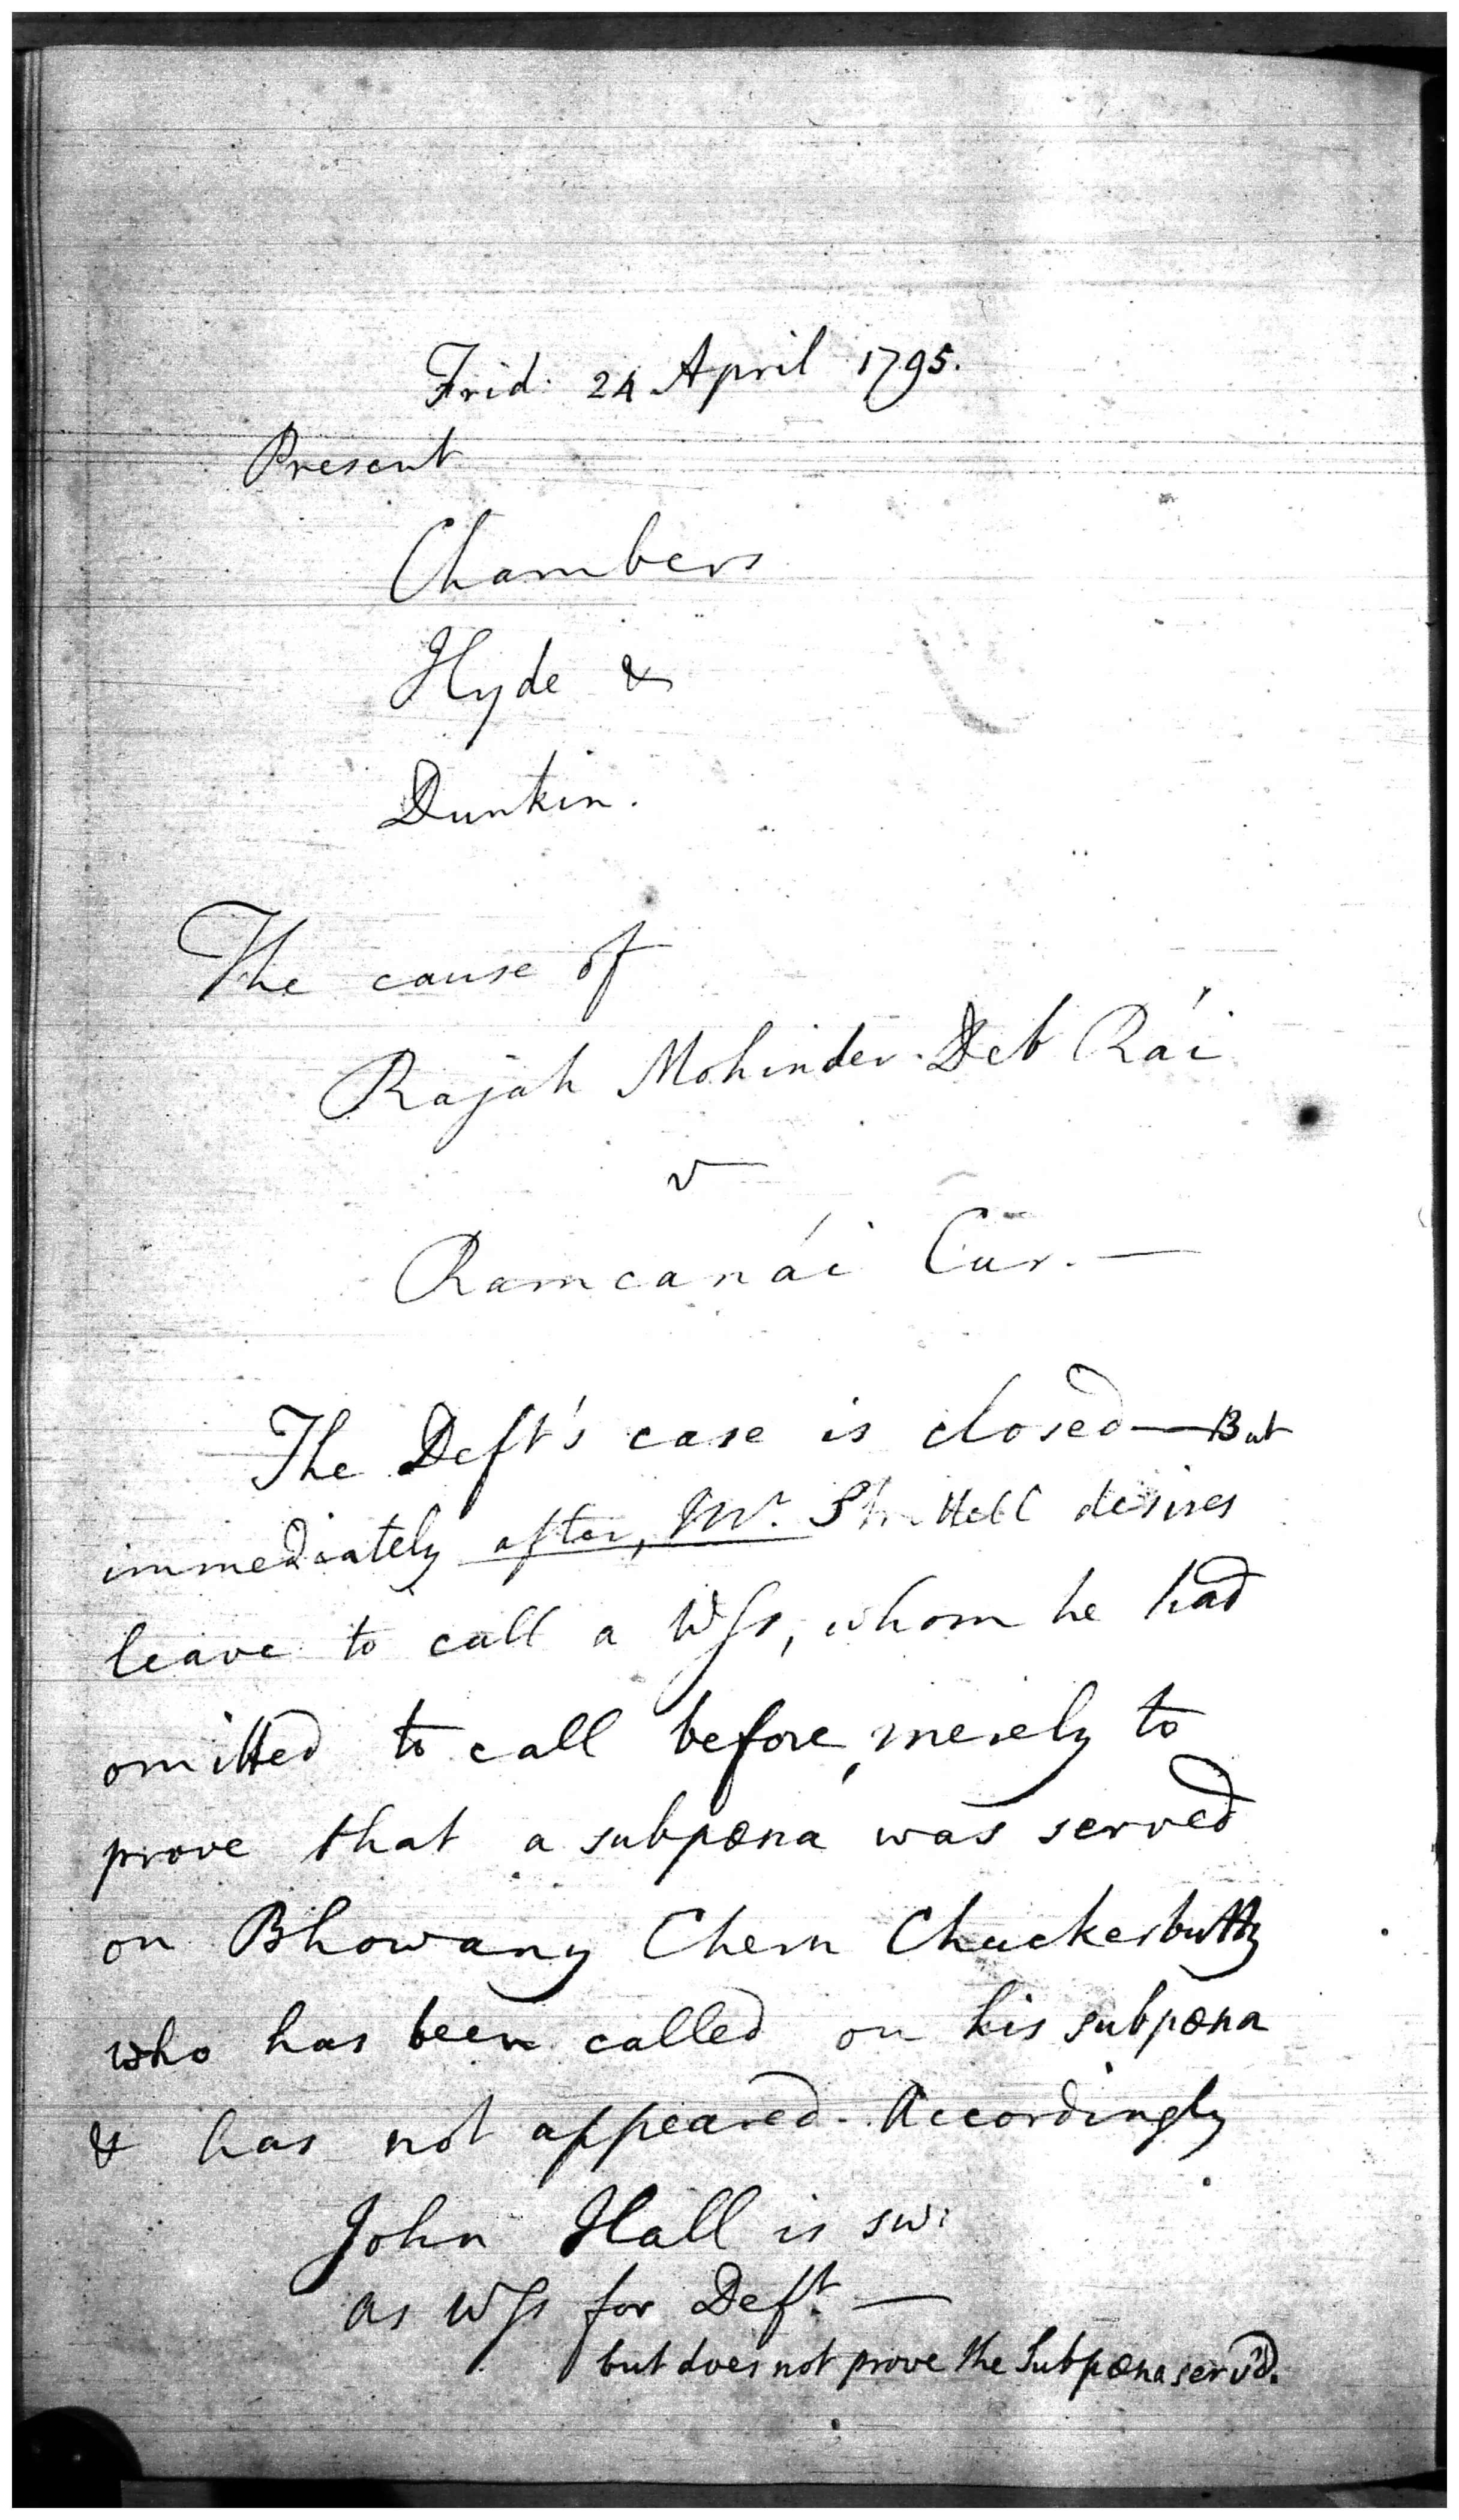 Frid: 24 April 1795.
Present
Chambers
Hyde &
Dunkin.
The cause of
Rajah Mohinder Deb Rái
v
Ramcanái Cur. —
The Deft's case is closed — But
immediately after, Mr. desires
leave to call a Wss, whom he had
omitted to call before, merely to
prove that a subpœna was served
on Bhowany Chern Chuckerbutty
who has been called on his subpœna
& has not appeared. Accordingly
John Hall is sw:
as Wss for Deft. —
but does not prove the Subpœna serv'd.